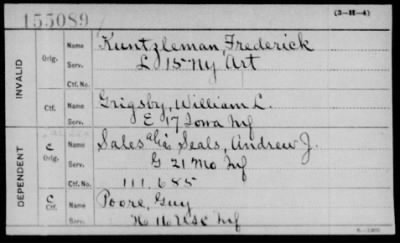 155089
(3-H-4)
INVALID
Orig.
Name Kuntzleman, Frederick
Serv. L 15" Ny Art
Ctf. No.
Ctf.
Name Grigsby, William L.
Serv. E 17 Iowa Inf
DEPENDENT
C
Orig.
Name Sales alias Seals, Andrew J.
Serv. G 21 Mo Inf
Ctf. No. 111,685
C
Ctf.
Name Poore, Guy
Serv. H 116 USC Inf